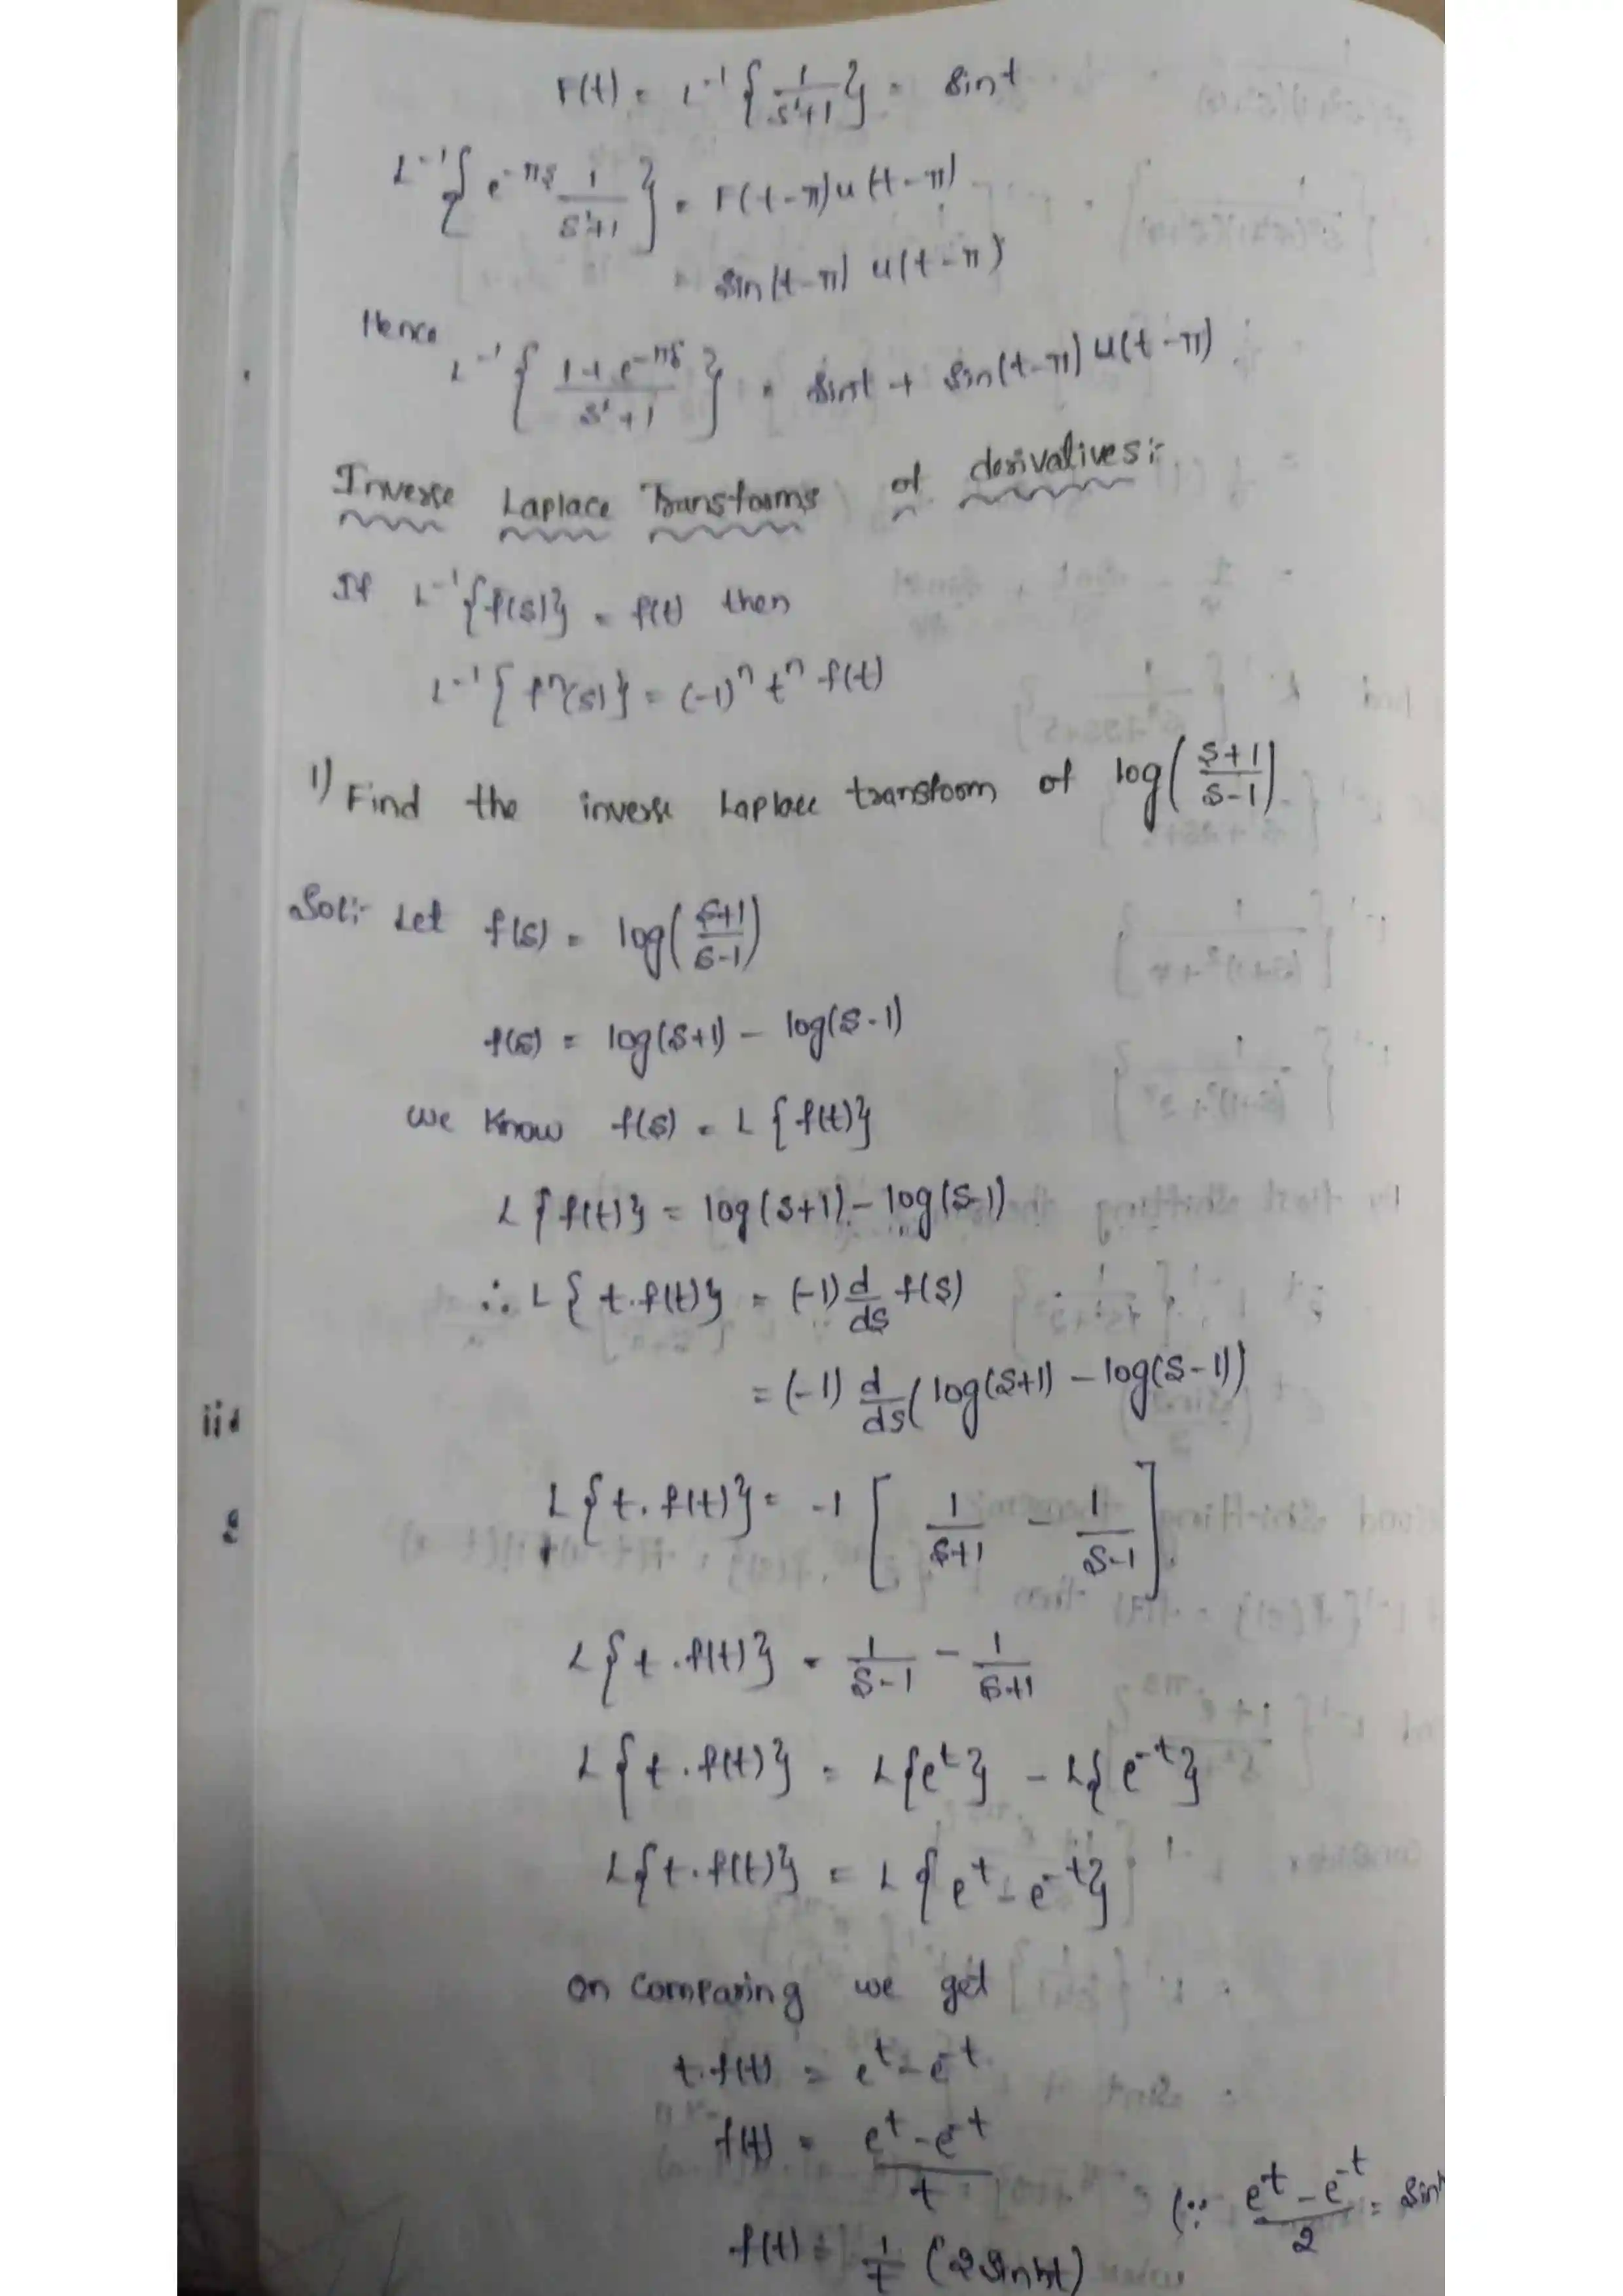 F(t) = L⁻¹ { 1/(s²+1) } = Sint
L⁻¹ { e^(-πs) 1/(s²+1) } = F(t-π) u(t-π)
= Sin(t-π) u(t-π)
Hence
L⁻¹ { (1+e^(-πs))/(s²+1) } = Sint + Sin(t-π) u(t-π)
Inverse Laplace Transforms of derivatives:-
If L⁻¹{f(s)} = f(t) then
L⁻¹{fⁿ(s)} = (-1)ⁿ tⁿ f(t)
1) Find the inverse Laplace transform of log((s+1)/(s-1))
Sol:- Let f(s) = log((s+1)/(s-1))
f(s) = log(s+1) - log(s-1)
we know f(s) = L{f(t)}
L{f(t)} = log(s+1) - log(s-1)
∴ L{t.f(t)} = (-1) d/ds f(s)
= (-1) d/ds (log(s+1) - log(s-1))
L{t.f(t)} = -1 [ 1/(s+1) - 1/(s-1) ]
L{t.f(t)} = 1/(s-1) - 1/(s+1)
L{t.f(t)} = L{e^t} - L{e^-t}
L{t.f(t)} = L{e^t - e^-t}
on comparing we get
t.f(t) = e^t - e^-t
f(t) = (e^t - e^-t)/t
(∵ (e^t - e^-t)/2 = Sinh
f(t) = 1/t (2 Sinht)